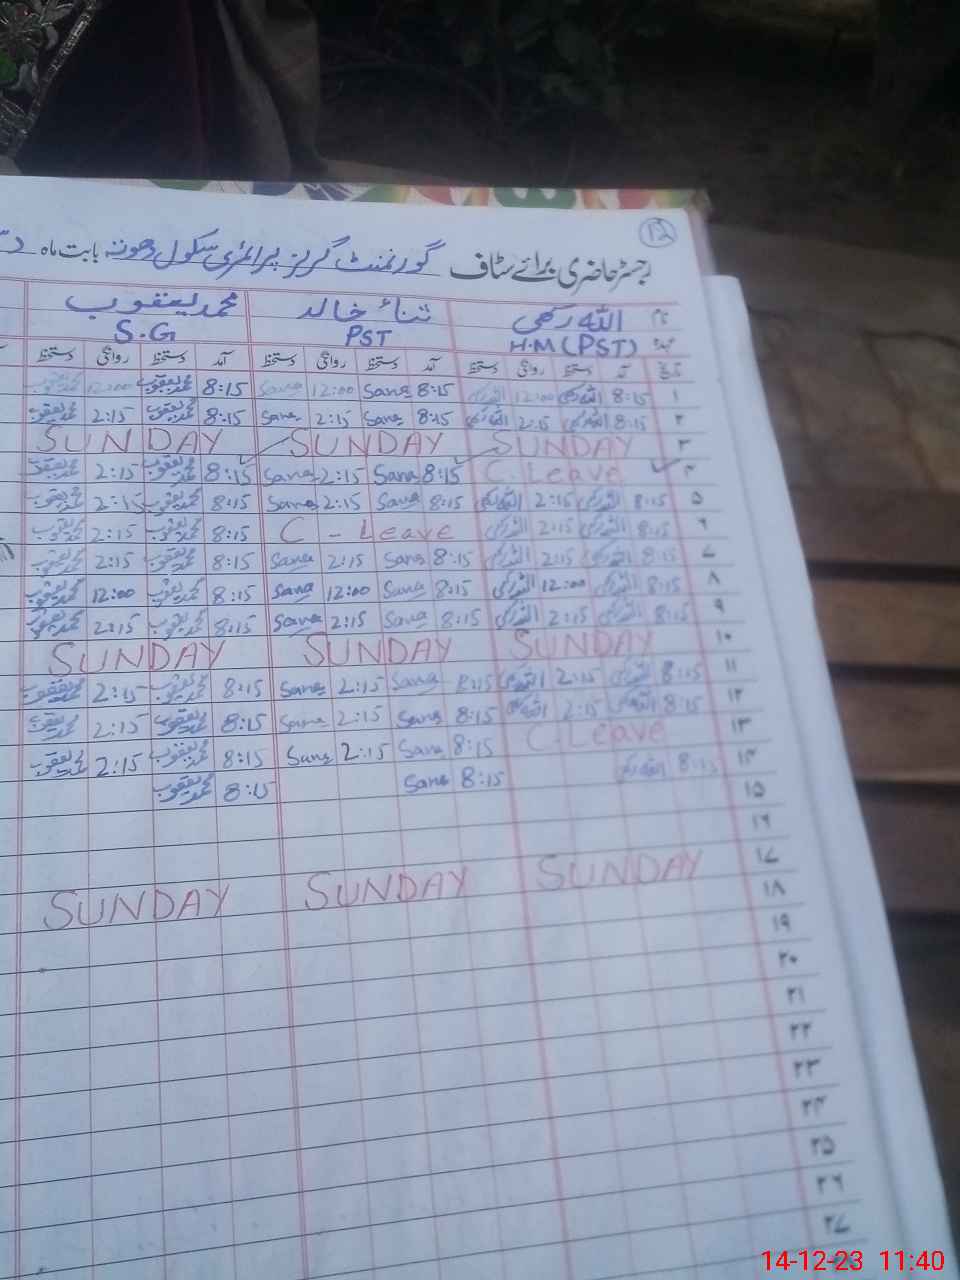 ۱۲
رجسٹر حاضری برائے سٹاف گورنمنٹ گرلز پرائمری سکول بابت ماہ
نام اللہ رکھی ثناء خالد محمد یعقوب
عہدہ H.M (PST) PST S.G
تاریخ آمد دستخط روانگی دستخط آمد دستخط روانگی دستخط آمد دستخط روانگی دستخط
۱ 8:15 اللہ رکھی 12:00 اللہ رکھی 8:15 Sana 12:00 Sana 8:15 محمد یعقوب 12:00 محمد یعقوب
۲ 8:15 اللہ رکھی 2:15 اللہ رکھی 8:15 Sana 2:15 Sana 8:15 محمد یعقوب 2:15 محمد یعقوب
۳ SUNDAY SUNDAY SUNDAY
۴ C Leave 8:15 Sana 2:15 Sana 8:15 محمد یعقوب 2:15 محمد یعقوب
۵ 8:15 اللہ رکھی 2:15 اللہ رکھی 8:15 Sana 2:15 Sana 8:15 محمد یعقوب 2:15 محمد یعقوب
۶ 8:15 اللہ رکھی 2:15 اللہ رکھی C - Leave 8:15 محمد یعقوب 2:15 محمد یعقوب
۷ 8:15 اللہ رکھی 2:15 اللہ رکھی 8:15 Sana 2:15 Sana 8:15 محمد یعقوب 2:15 محمد یعقوب
۸ 8:15 اللہ رکھی 12:00 اللہ رکھی 8:15 Sana 12:00 Sana 8:15 محمد یعقوب 12:00 محمد یعقوب
۹ 8:15 اللہ رکھی 2:15 اللہ رکھی 8:15 Sana 2:15 Sana 8:15 محمد یعقوب 2:15 محمد یعقوب
۱۰ SUNDAY SUNDAY SUNDAY
۱۱ 8:15 اللہ رکھی 2:15 اللہ رکھی 8:15 Sana 2:15 Sana 8:15 محمد یعقوب 2:15 محمد یعقوب
۱۲ 8:15 اللہ رکھی 2:15 اللہ رکھی 8:15 Sana 2:15 Sana 8:15 محمد یعقوب 2:15 محمد یعقوب
۱۳ C-Leave 8:15 Sana 2:15 Sana 8:15 محمد یعقوب 2:15 محمد یعقوب
۱۴ 8:15 اللہ رکھی 8:15 Sana 8:15 محمد یعقوب
۱۵
۱۶
۱۷ SUNDAY SUNDAY SUNDAY
۱۸
۱۹
۲۰
۲۱
۲۲
۲۳
۲۴
۲۵
۲۶
۲۷
14-12-23 11:40